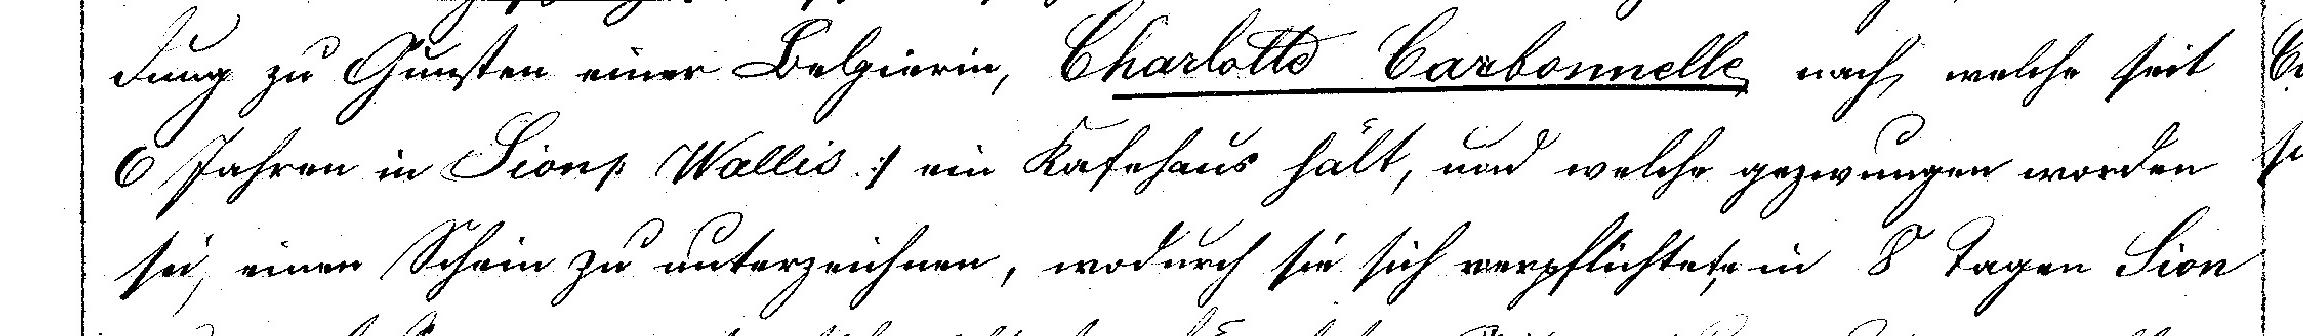 dung zu Gunsten einer Belgierin, Charlotte Carbonnelle nach, welche seit
6 Jahren in Sion /: Wallis :/ ein Kafehaus hält, und welche gezwungen worden
sei, einen Schein zu unterzeichnen, wodurch sie sich verpflichtete, in 8 Tagen Sion